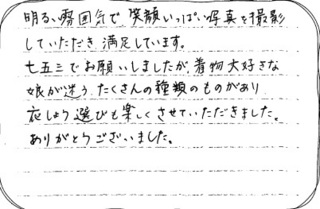 明るい雰囲気で笑顔いっぱい写真を撮影
していただき、満足しています。
七五三でお願いしましたが、着物大好きな
娘が迷う、たくさんの種類のものがあり
衣しょう選びも楽しくさせていただきました。
ありがとうございました。